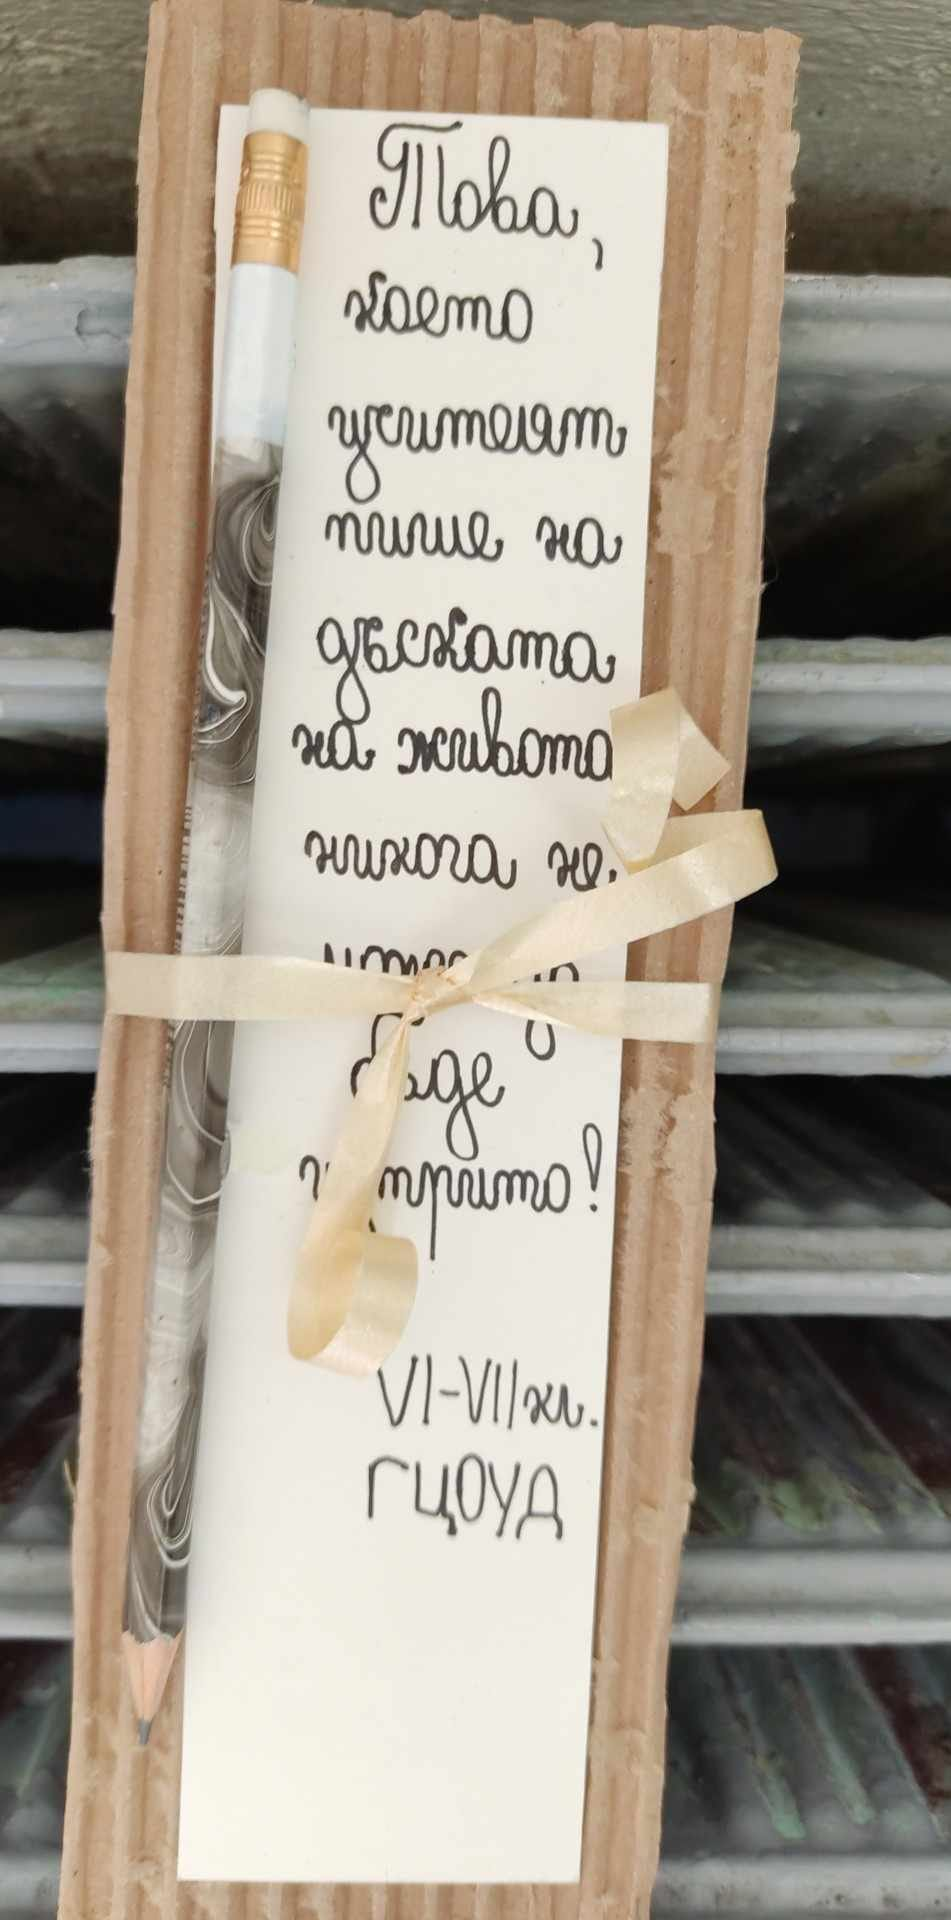 Това,
което
учителят
пише на
дъската
на живота
никога не
да
бъде
изтрито!
VI-VII кл.
ГЦОУД